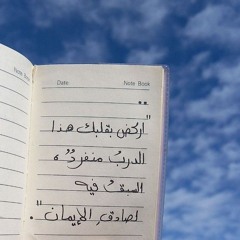 Note Book
Date Note Book
..
"اركض بقلبك هذا
الدربُ منفردُ ه
السبقُ فيه
لصادقِ الإيمان".